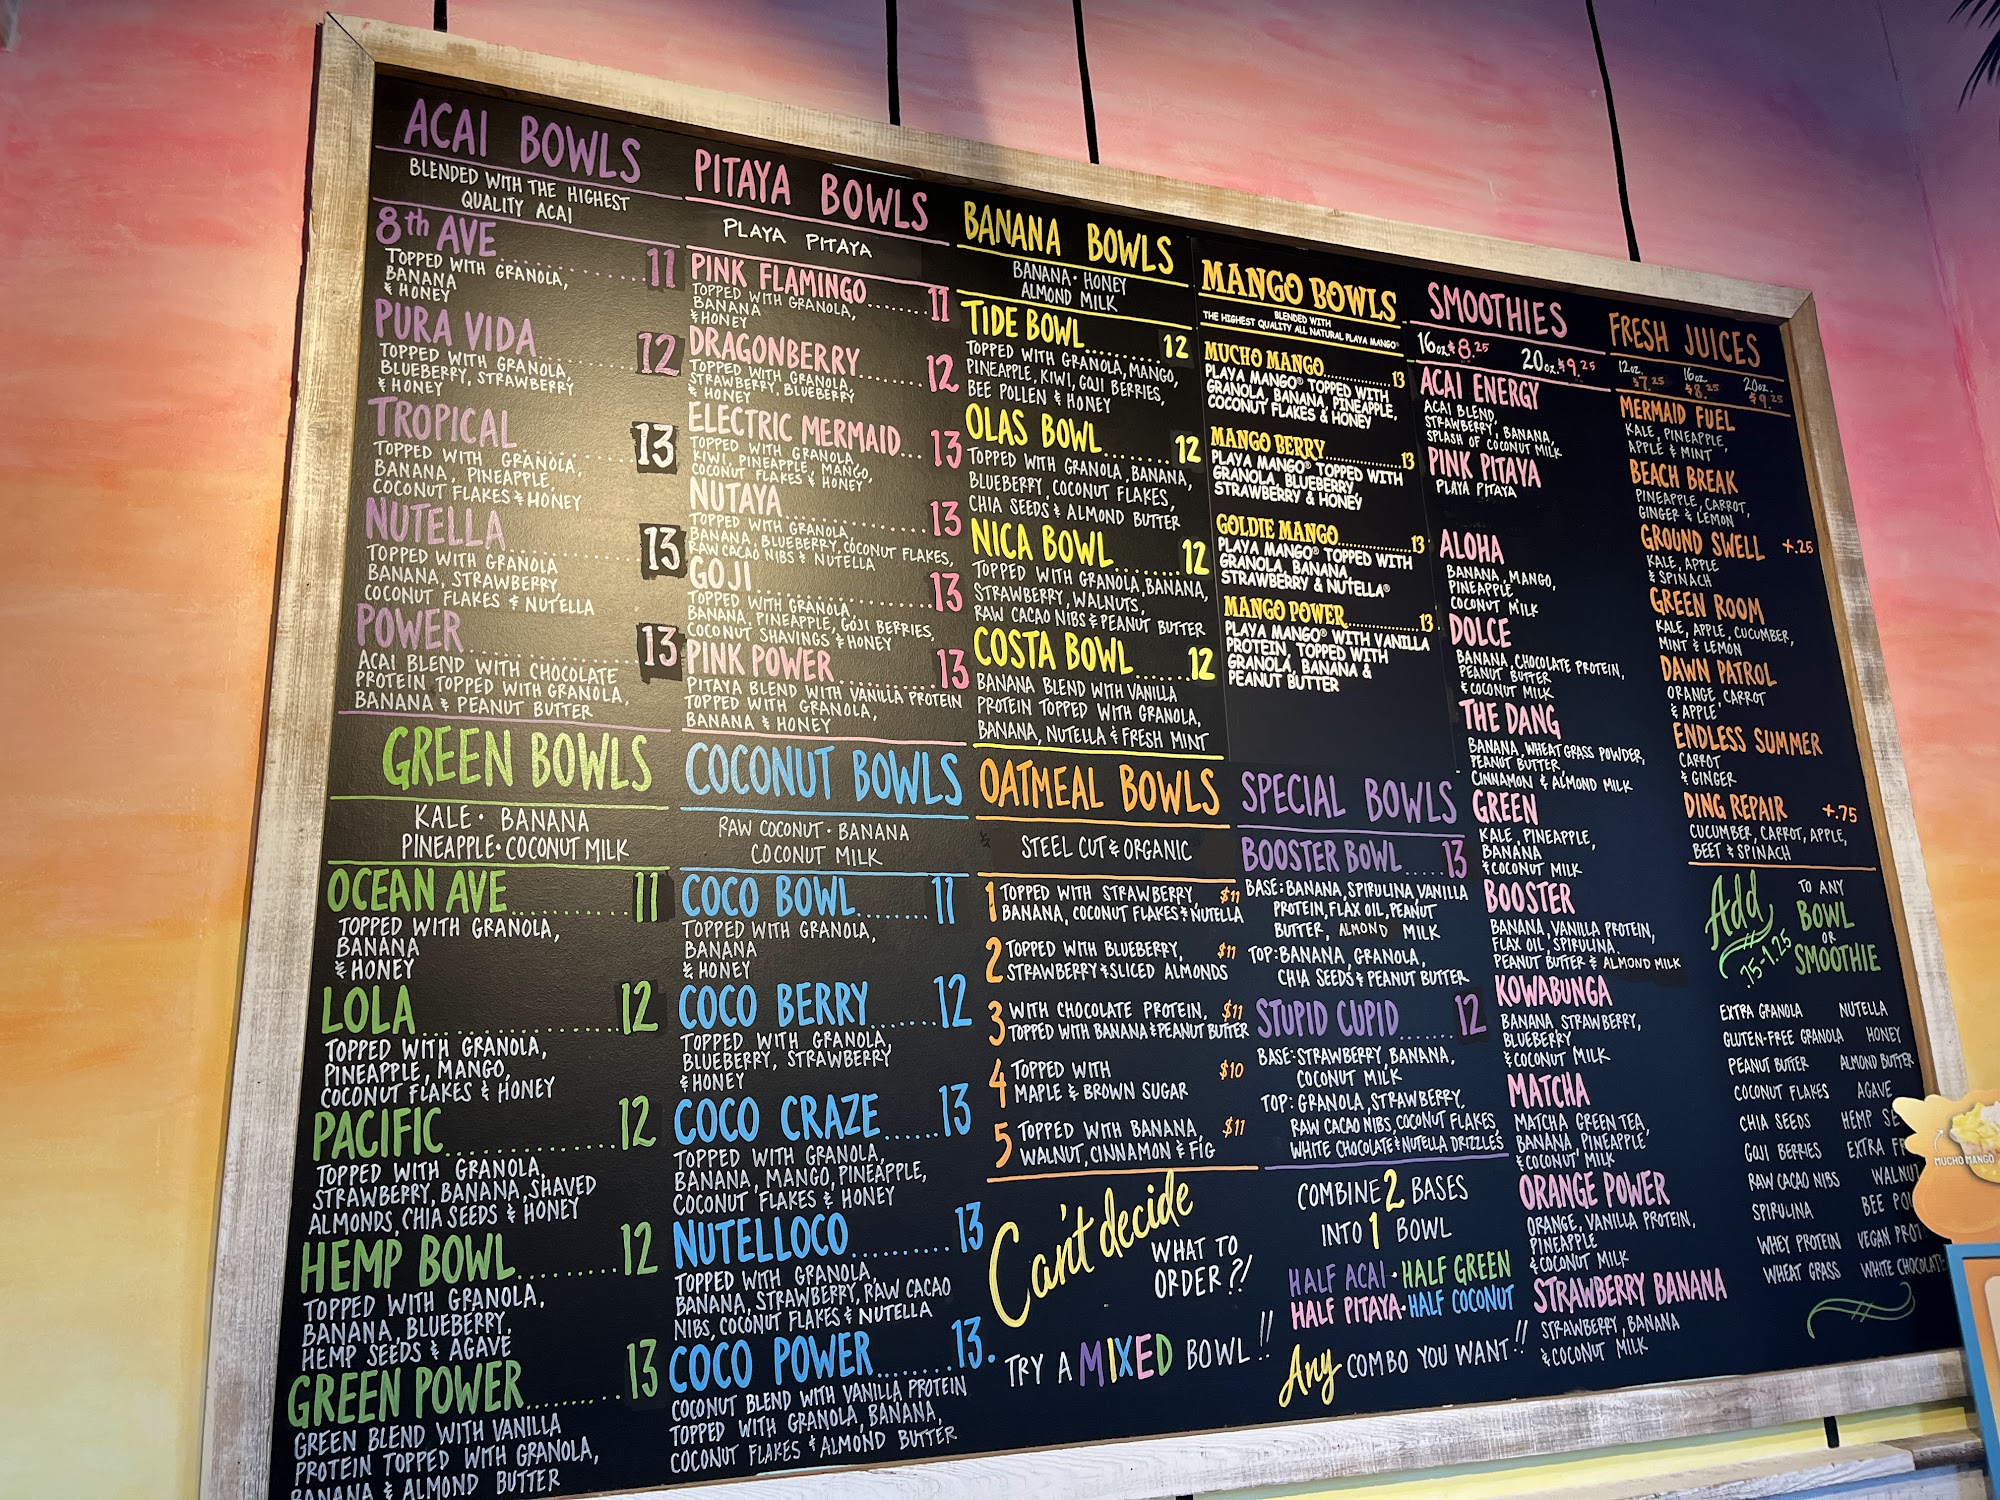 ACAI BOWLS
BLENDED WITH THE HIGHEST
QUALITY ACAI
8th AVE..............11
TOPPED WITH GRANOLA,
BANANA
& HONEY
PURA VIDA..............12
TOPPED WITH GRANOLA,
BLUEBERRY, STRAWBERRY
& HONEY
TROPICAL..............13
TOPPED WITH GRANOLA,
BANANA, PINEAPPLE,
COCONUT FLAKES & HONEY
NUTELLA..............13
TOPPED WITH GRANOLA
BANANA, STRAWBERRY,
COCONUT FLAKES & NUTELLA
POWER..............13
ACAI BLEND WITH CHOCOLATE
PROTEIN TOPPED WITH GRANOLA,
BANANA & PEANUT BUTTER
GREEN BOWLS
KALE • BANANA
PINEAPPLE • COCONUT MILK
OCEAN AVE..............11
TOPPED WITH GRANOLA,
BANANA
& HONEY
LOLA..............12
TOPPED WITH GRANOLA,
PINEAPPLE, MANGO,
COCONUT FLAKES & HONEY
PACIFIC..............12
TOPPED WITH GRANOLA,
STRAWBERRY, BANANA, SHAVED
ALMONDS, CHIA SEEDS & HONEY
HEMP BOWL.........12
TOPPED WITH GRANOLA,
BANANA, BLUEBERRY,
HEMP SEEDS & AGAVE
GREEN POWER........13
GREEN BLEND WITH VANILLA
PROTEIN TOPPED WITH GRANOLA,
BANANA & ALMOND BUTTER
PITAYA BOWLS
PLAYA PITAYA
PINK FLAMINGO.......11
TOPPED WITH GRANOLA,
BANANA
& HONEY
DRAGONBERRY.......12
TOPPED WITH GRANOLA,
STRAWBERRY, BLUEBERRY
& HONEY
ELECTRIC MERMAID...13
TOPPED WITH GRANOLA,
KIWI, PINEAPPLE, MANGO,
COCONUT FLAKES & HONEY
NUTAYA..............13
TOPPED WITH GRANOLA,
BANANA, BLUEBERRY, COCONUT FLAKES,
RAW CACAO NIBS & NUTELLA
GOJI..............13
TOPPED WITH GRANOLA,
BANANA, PINEAPPLE, GOJI BERRIES,
COCONUT SHAVINGS & HONEY
PINK POWER..........13
PITAYA BLEND WITH VANILLA PROTEIN
TOPPED WITH GRANOLA,
BANANA & HONEY
COCONUT BOWLS
RAW COCONUT • BANANA
COCONUT MILK
COCO BOWL.......11
TOPPED WITH GRANOLA,
BANANA
& HONEY
COCO BERRY......12
TOPPED WITH GRANOLA,
BLUEBERRY, STRAWBERRY
& HONEY
COCO CRAZE......13
TOPPED WITH GRANOLA,
BANANA, MANGO, PINEAPPLE,
COCONUT FLAKES & HONEY
NUTELLOCO..........13
TOPPED WITH GRANOLA,
BANANA, STRAWBERRY, RAW CACAO
NIBS, COCONUT FLAKES & NUTELLA
COCO POWER.......13.
COCONUT BLEND WITH VANILLA PROTEIN
TOPPED WITH GRANOLA, BANANA,
COCONUT FLAKES & ALMOND BUTTER
BANANA BOWLS
BANANA • HONEY
ALMOND MILK
TIDE BOWL.........12
TOPPED WITH GRANOLA, MANGO,
PINEAPPLE, KIWI, GOJI BERRIES,
BEE POLLEN & HONEY
OLAS BOWL.........12
TOPPED WITH GRANOLA, BANANA,
BLUEBERRY, COCONUT FLAKES,
CHIA SEEDS & ALMOND BUTTER
NICA BOWL.........12
TOPPED WITH GRANOLA, BANANA,
STRAWBERRY, WALNUTS,
RAW CACAO NIBS & PEANUT BUTTER
COSTA BOWL......12
BANANA BLEND WITH VANILLA
PROTEIN TOPPED WITH GRANOLA,
BANANA, NUTELLA & FRESH MINT
OATMEAL BOWLS
STEEL CUT & ORGANIC
1 TOPPED WITH STRAWBERRY, $11
BANANA, COCONUT FLAKES & NUTELLA
2 TOPPED WITH BLUEBERRY, $11
STRAWBERRY & SLICED ALMONDS
3 WITH CHOCOLATE PROTEIN, $11
TOPPED WITH BANANA & PEANUT BUTTER
4 TOPPED WITH $10
MAPLE & BROWN SUGAR
5 TOPPED WITH BANANA, $11
WALNUT, CINNAMON & FIG
Can't decide
WHAT TO
ORDER?!
TRY A MIXED BOWL!!
MANGO BOWLS
BLENDED WITH
THE HIGHEST QUALITY ALL NATURAL PLAYA MANGO®
MUCHO MANGO...........13
PLAYA MANGO® TOPPED WITH
GRANOLA, BANANA, PINEAPPLE,
COCONUT FLAKES & HONEY
MANGO BERRY............13
PLAYA MANGO® TOPPED WITH
GRANOLA, BLUEBERRY,
STRAWBERRY & HONEY
GOLDIE MANGO............13
PLAYA MANGO® TOPPED WITH
GRANOLA, BANANA,
STRAWBERRY & NUTELLA®
MANGO POWER............13
PLAYA MANGO® WITH VANILLA
PROTEIN, TOPPED WITH
GRANOLA, BANANA &
PEANUT BUTTER
SPECIAL BOWLS
BOOSTER BOWL.....13
BASE: BANANA, SPIRULINA, VANILLA
PROTEIN, FLAX OIL, PEANUT
BUTTER, ALMOND MILK
TOP: BANANA, GRANOLA,
CHIA SEEDS & PEANUT BUTTER
STUPID CUPID.......12
BASE: STRAWBERRY, BANANA,
COCONUT MILK
TOP: GRANOLA, STRAWBERRY,
RAW CACAO NIBS, COCONUT FLAKES,
WHITE CHOCOLATE & NUTELLA DRIZZLES
COMBINE 2 BASES
INTO 1 BOWL
HALF ACAI • HALF GREEN
HALF PITAYA • HALF COCONUT
Any COMBO YOU WANT!!
SMOOTHIES
16oz $8.25 20oz $9.25
ACAI ENERGY
ACAI BLEND,
STRAWBERRY, BANANA,
SPLASH OF COCONUT MILK
PINK PITAYA
PLAYA PITAYA
ALOHA
BANANA, MANGO,
PINEAPPLE,
COCONUT MILK
DOLCE
BANANA, CHOCOLATE PROTEIN,
PEANUT BUTTER
& COCONUT MILK
THE DANG
BANANA, WHEAT GRASS POWDER,
PEANUT BUTTER,
CINNAMON & ALMOND MILK
GREEN
KALE, PINEAPPLE,
BANANA
& COCONUT MILK
BOOSTER
BANANA, VANILLA PROTEIN,
FLAX OIL, SPIRULINA.
PEANUT BUTTER & ALMOND MILK
KOWABUNGA
BANANA, STRAWBERRY,
BLUEBERRY
& COCONUT MILK
MATCHA
MATCHA GREEN TEA,
BANANA, PINEAPPLE
& COCONUT MILK
ORANGE POWER
ORANGE, VANILLA PROTEIN,
PINEAPPLE
& COCONUT MILK
STRAWBERRY BANANA
STRAWBERRY, BANANA
& COCONUT MILK
FRESH JUICES
12oz. 16oz 20oz.
$7.25 $8.25 $9.25
MERMAID FUEL
KALE, PINEAPPLE,
APPLE & MINT
BEACH BREAK
PINEAPPLE, CARROT,
GINGER & LEMON
GROUND SWELL +.25
KALE, APPLE
& SPINACH
GREEN ROOM
KALE, APPLE, CUCUMBER,
MINT & LEMON
DAWN PATROL
ORANGE, CARROT
& APPLE
ENDLESS SUMMER
CARROT
& GINGER
DING REPAIR +.75
CUCUMBER, CARROT, APPLE,
BEET & SPINACH
Add .75-1.25
TO ANY
BOWL
OR
SMOOTHIE
EXTRA GRANOLA NUTELLA
GLUTEN-FREE GRANOLA HONEY
PEANUT BUTTER ALMOND BUTTER
COCONUT FLAKES AGAVE
CHIA SEEDS HEMP SE
GOJI BERRIES EXTRA FR
RAW CACAO NIBS WALNUT
SPIRULINA BEE PO
WHEY PROTEIN VEGAN PROT
WHEAT GRASS WHITE CHOCOLATE
MUCHO MANGO